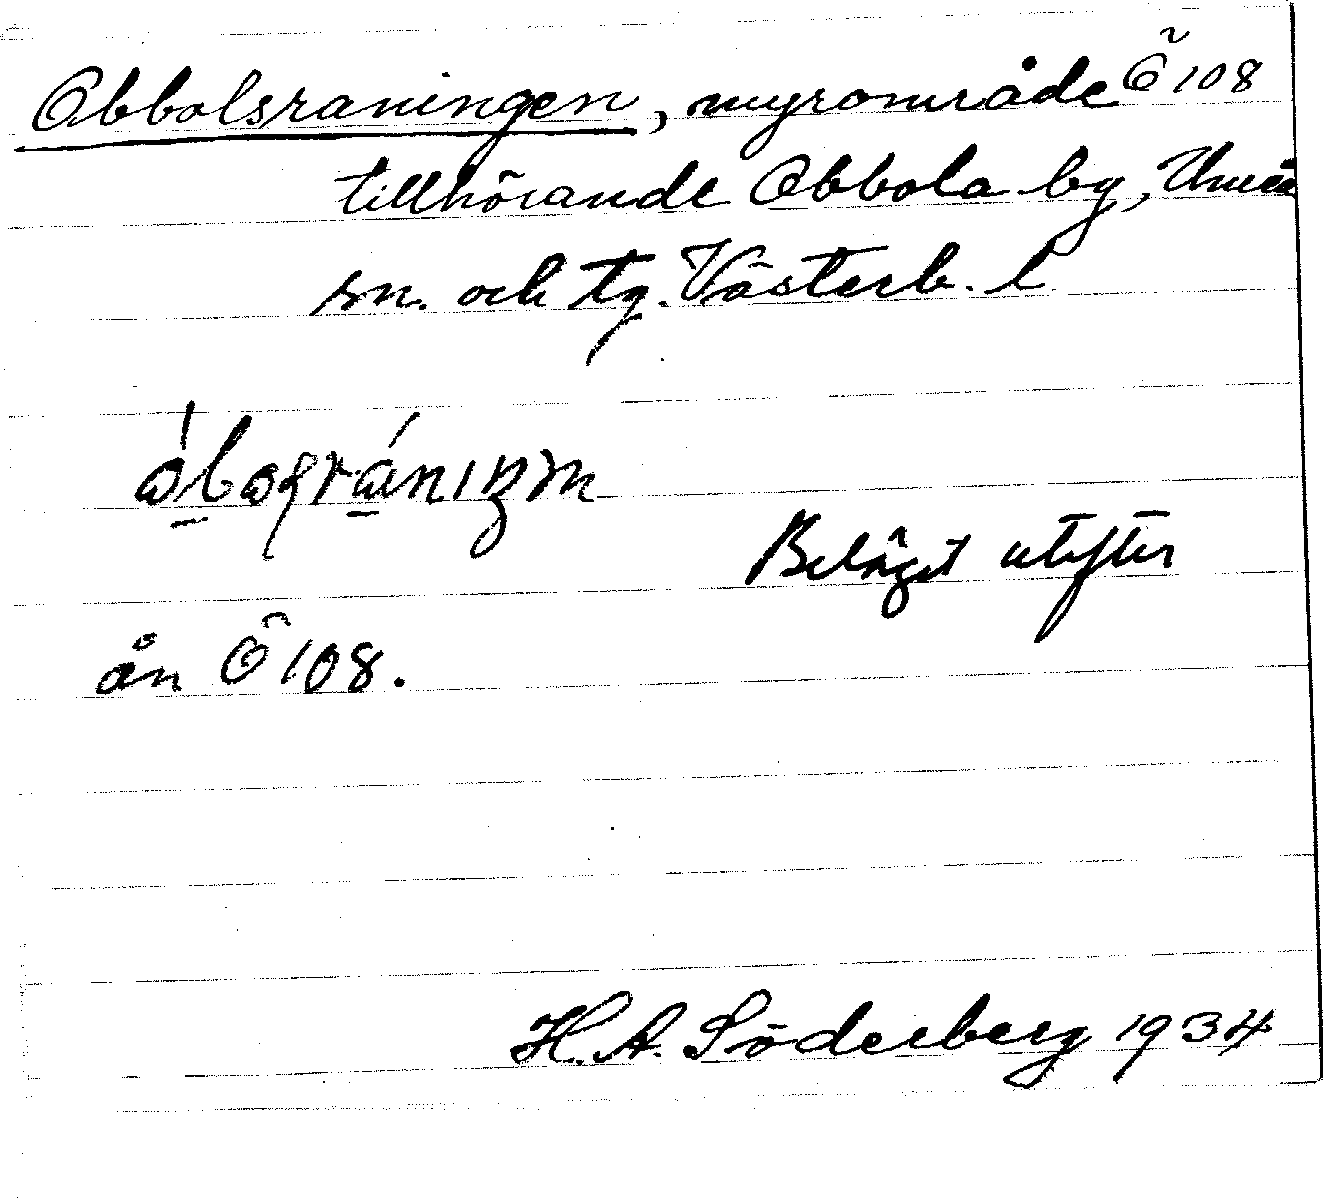 Obbolsraningen, myrområde Ö 108
tillhörande Obbola by, Umeå
sn. och tg. Västerb. l
Beläget utefter
ån Ö 108.
H. A. Söderberg 1934